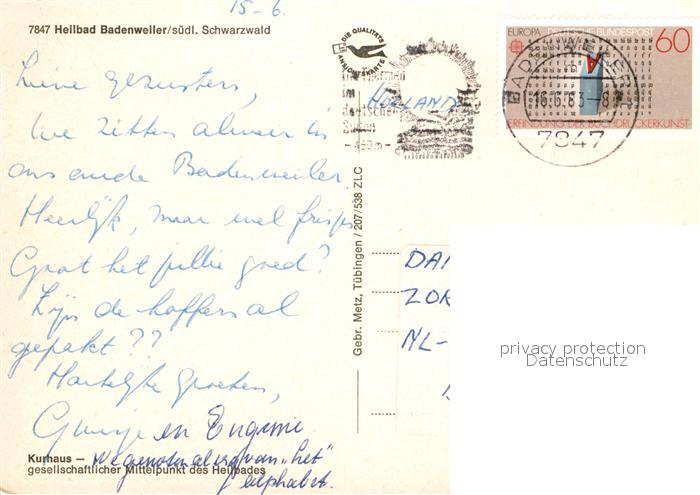 15-6.
7847 Heilbad Badenweiler/südl. Schwarzwald
DIE QUALITÄTS
ANSICHTSKARTE
Thermen
im
deutschen
Süden
- 450 m -
EUROPA DEUTSCHE BUNDESPOST 60
ERFINDUNG DER BUCHDRUCKERKUNST
BADENWEILER
16.6.83-8
7847
HOLLAND
Lieve
We zitten alweer in
ons oude Badenweiler.
Heerlijk, maar wel frisjes
Gaat het jullie goed?
Zijn de koffers al
gepakt??
Hartelijke groeten,
en Eugenie
van "het"
alphabet.
Gebr. Metz, Tübingen / 207/538 ZLC
DAM
ZOR
NL-
Kurhaus –
gesellschaftlicher Mittelpunkt des Heilbades
privacy protection
Datenschutz